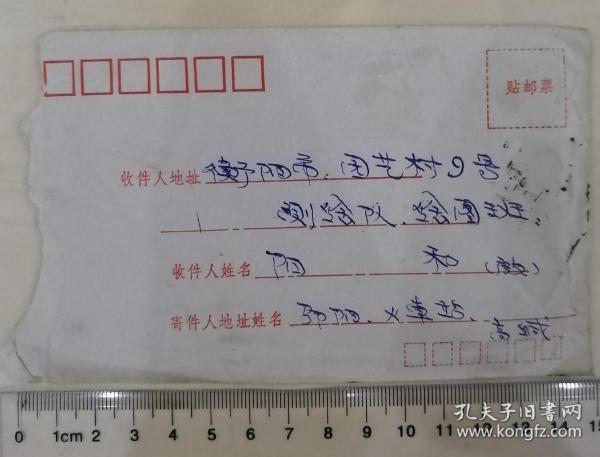 贴邮票
收件人地址 衡阳市、园艺村9号
测绘队、绘图班。
收件人姓名 阳 和 (收)
寄件人地址姓名 邵阳、火車站、
高城
0 1cm 2 3 4 5 6 7 8 9 10 11 12 13 14 15
孔夫子旧书网
www.kongfz.com